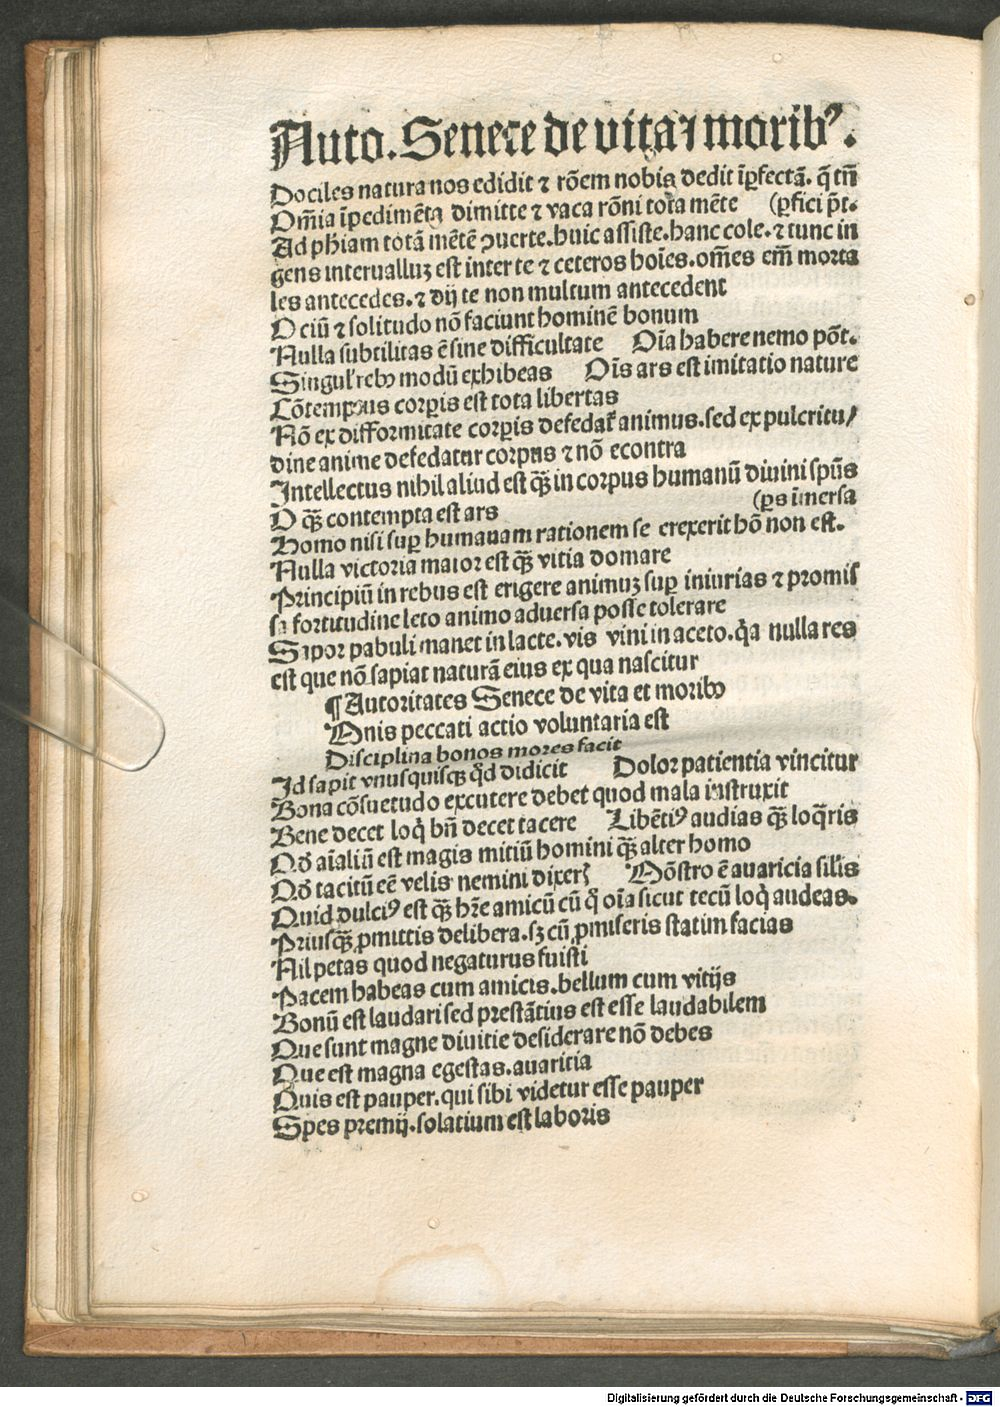 Auto. Senece de vita ⁊ morib⁹.
Dociles natura nos edidit ⁊ rōem nobis dedit īꝑfectā. q̄ tn̄
Om̄ia īpedimēta dimitte ⁊ vaca rōni tota mēte (ꝑfici p̄t.
Ad ph̄iam totā mētē ꝯuerte. huic assiste. hanc cole. ⁊ tunc in
gens interualluꝫ est inter te ⁊ ceteros hoīes. om̄es em̄ morta
les antecedes. ⁊ dij te non multum antecedent
Ociū ⁊ solitudo nō faciunt hominē bonum
Nulla subtilitas ē sine difficultate Oīa habere nemo pōt.
Singul' rebꝰ modū exhibeas Oīs ars est imitatio nature
Cōtemptus corꝑis est tota libertas
Nō ex difformitate corꝑis defedat̄ animus. sed ex pulcritu/
dine anime defedatur corpus ⁊ nō econtra
Intellectus nihil aliud est q̄ꝫ in corpus humanū diuini spūs
O q̄ꝫ contempta est ars (ꝑs īmersa
Homo nisi suꝑ humanam rationem se erexerit hō non est.
Nulla victoria maior est q̄ꝫ vitia domare
Principiū in rebus est erigere animuꝫ suꝑ iniurias ⁊ promis
sa fortitudine leto animo aduersa posse tolerare
Sapor pabuli manet in lacte. vis vini in aceto. q̄a nulla res
est que nō sapiat naturā eius ex qua nascitur
¶ Autoritates Senece de vita et moribꝰ
Omnis peccati actio voluntaria est
Disciplina bonos mores facit
Id sapit vnusquisqꝫ q̄d didicit Dolor patientia vincitur
Bona cōsuetudo excutere debet quod mala instruxit
Bene decet loq̄ bn̄ decet tacere Libēti⁹ audias q̄ꝫ loq̄ris
Qd̄ aīaliū est magis mitiū homini q̄ꝫ alter homo
Qd̄ tacitū eē velis nemini dixerꝭ Mōstro ē auaricia sil'is
Quid dulci⁹ est q̄ꝫ hr̄e amicū cū q̄ oīa sicut tecū loq̄ audeas.
Priusq̄ꝫ ꝓmittis delibera. sꝫ cū ꝓmiseris statim facias
Nil petas quod negaturus fuisti
Pacem habeas cum amicis. bellum cum vitijs
Bonū est laudari sed prestātius est esse laudabilem
Que sunt magne diuitie desiderare nō debes
Que est magna egestas. auaritia
Quis est pauper. qui sibi videtur esse pauper
Spes premij. solatium est laboris
Digitalisierung gefördert durch die Deutsche Forschungsgemeinschaft - DFG